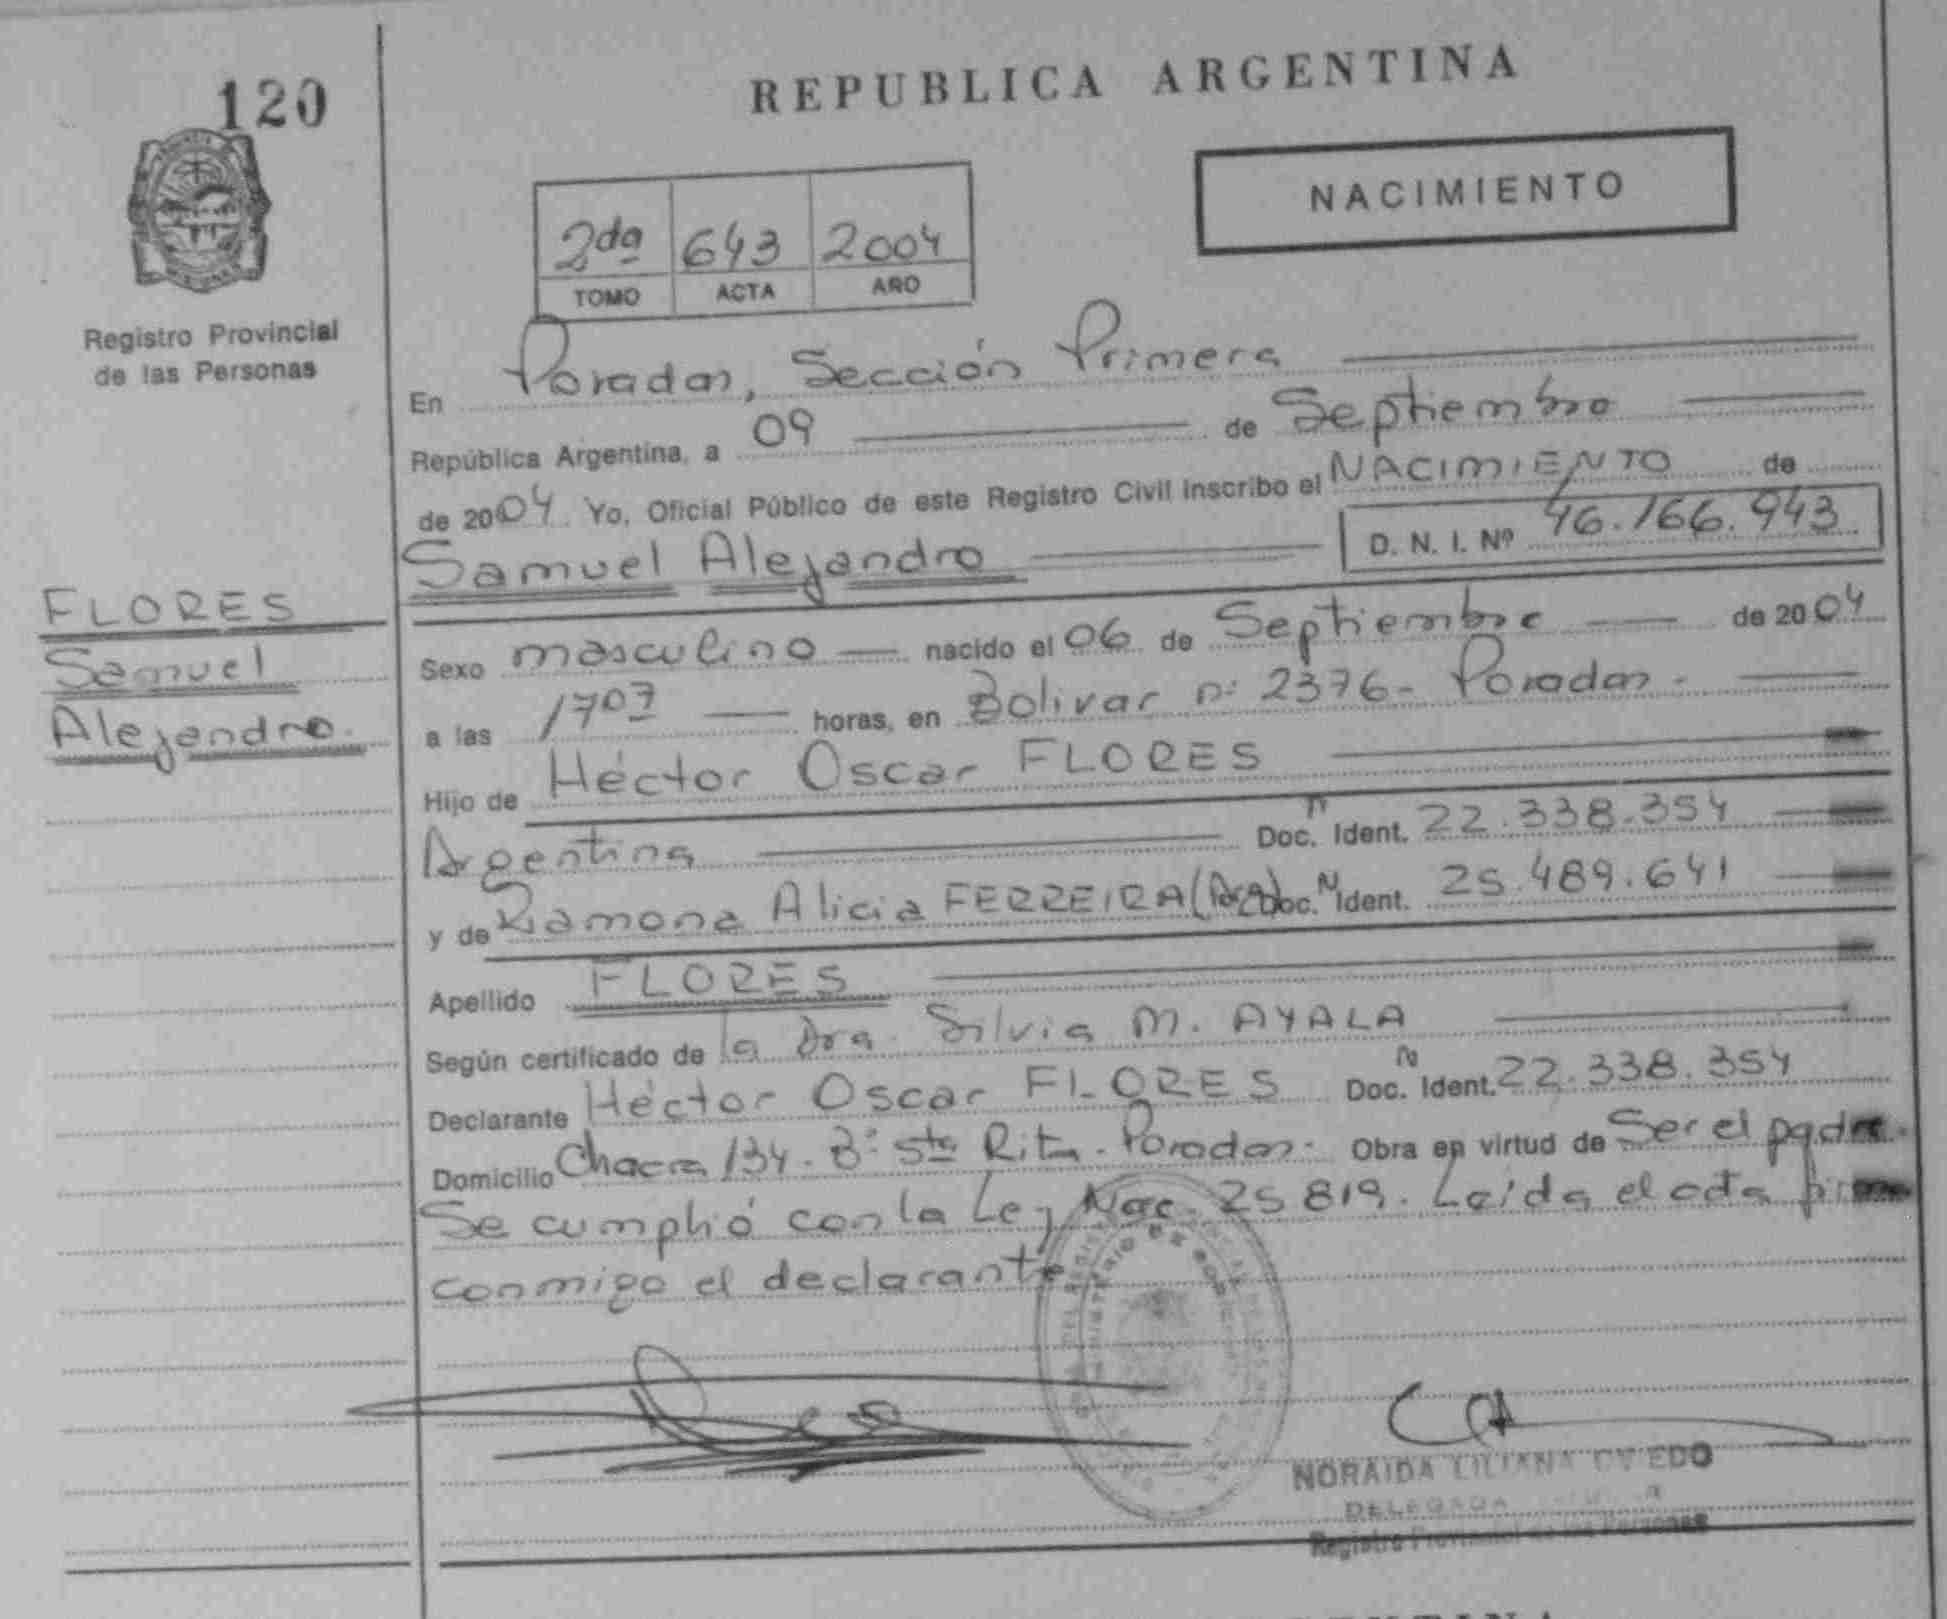 120
REPUBLICA ARGENTINA
NACIMIENTO
2da 643 2004
TOMO ACTA AÑO
Registro Provincial
de las Personas
En Posadas, Sección Primera
República Argentina, a 09 de Septiembre
de 2004 Yo, Oficial Público de este Registro Civil inscribo el NACIMIENTO de
Samuel Alejandro D. N. I. Nº 46.166.943
FLORES
Samuel
Alejandro.
Sexo masculino nacido el 06 de Septiembre de 2004
a las 1707 horas, en Bolivar nº 2376- Posadas.
Hijo de Héctor Oscar FLORES
Argentina Doc. N Ident. 22.338.354
y de Ramona Alicia FERREIRA (Arg) Doc. N Ident. 25.489.641
Apellido FLORES
Según certificado de la Dra. Silvia M. AYALA
Declarante Héctor Oscar FLORES Doc. N Ident. 22.338.354
Domicilio Chacra 134. Bº Sta Rita. Posadas. Obra en virtud de Ser el padre.
Se cumplió con la Ley Nac. 25819. Leída el acta firma
conmigo el declarante
NORAIDA LILIANA OVIEDO
DELEGADA
Registro Provincial de las Personas